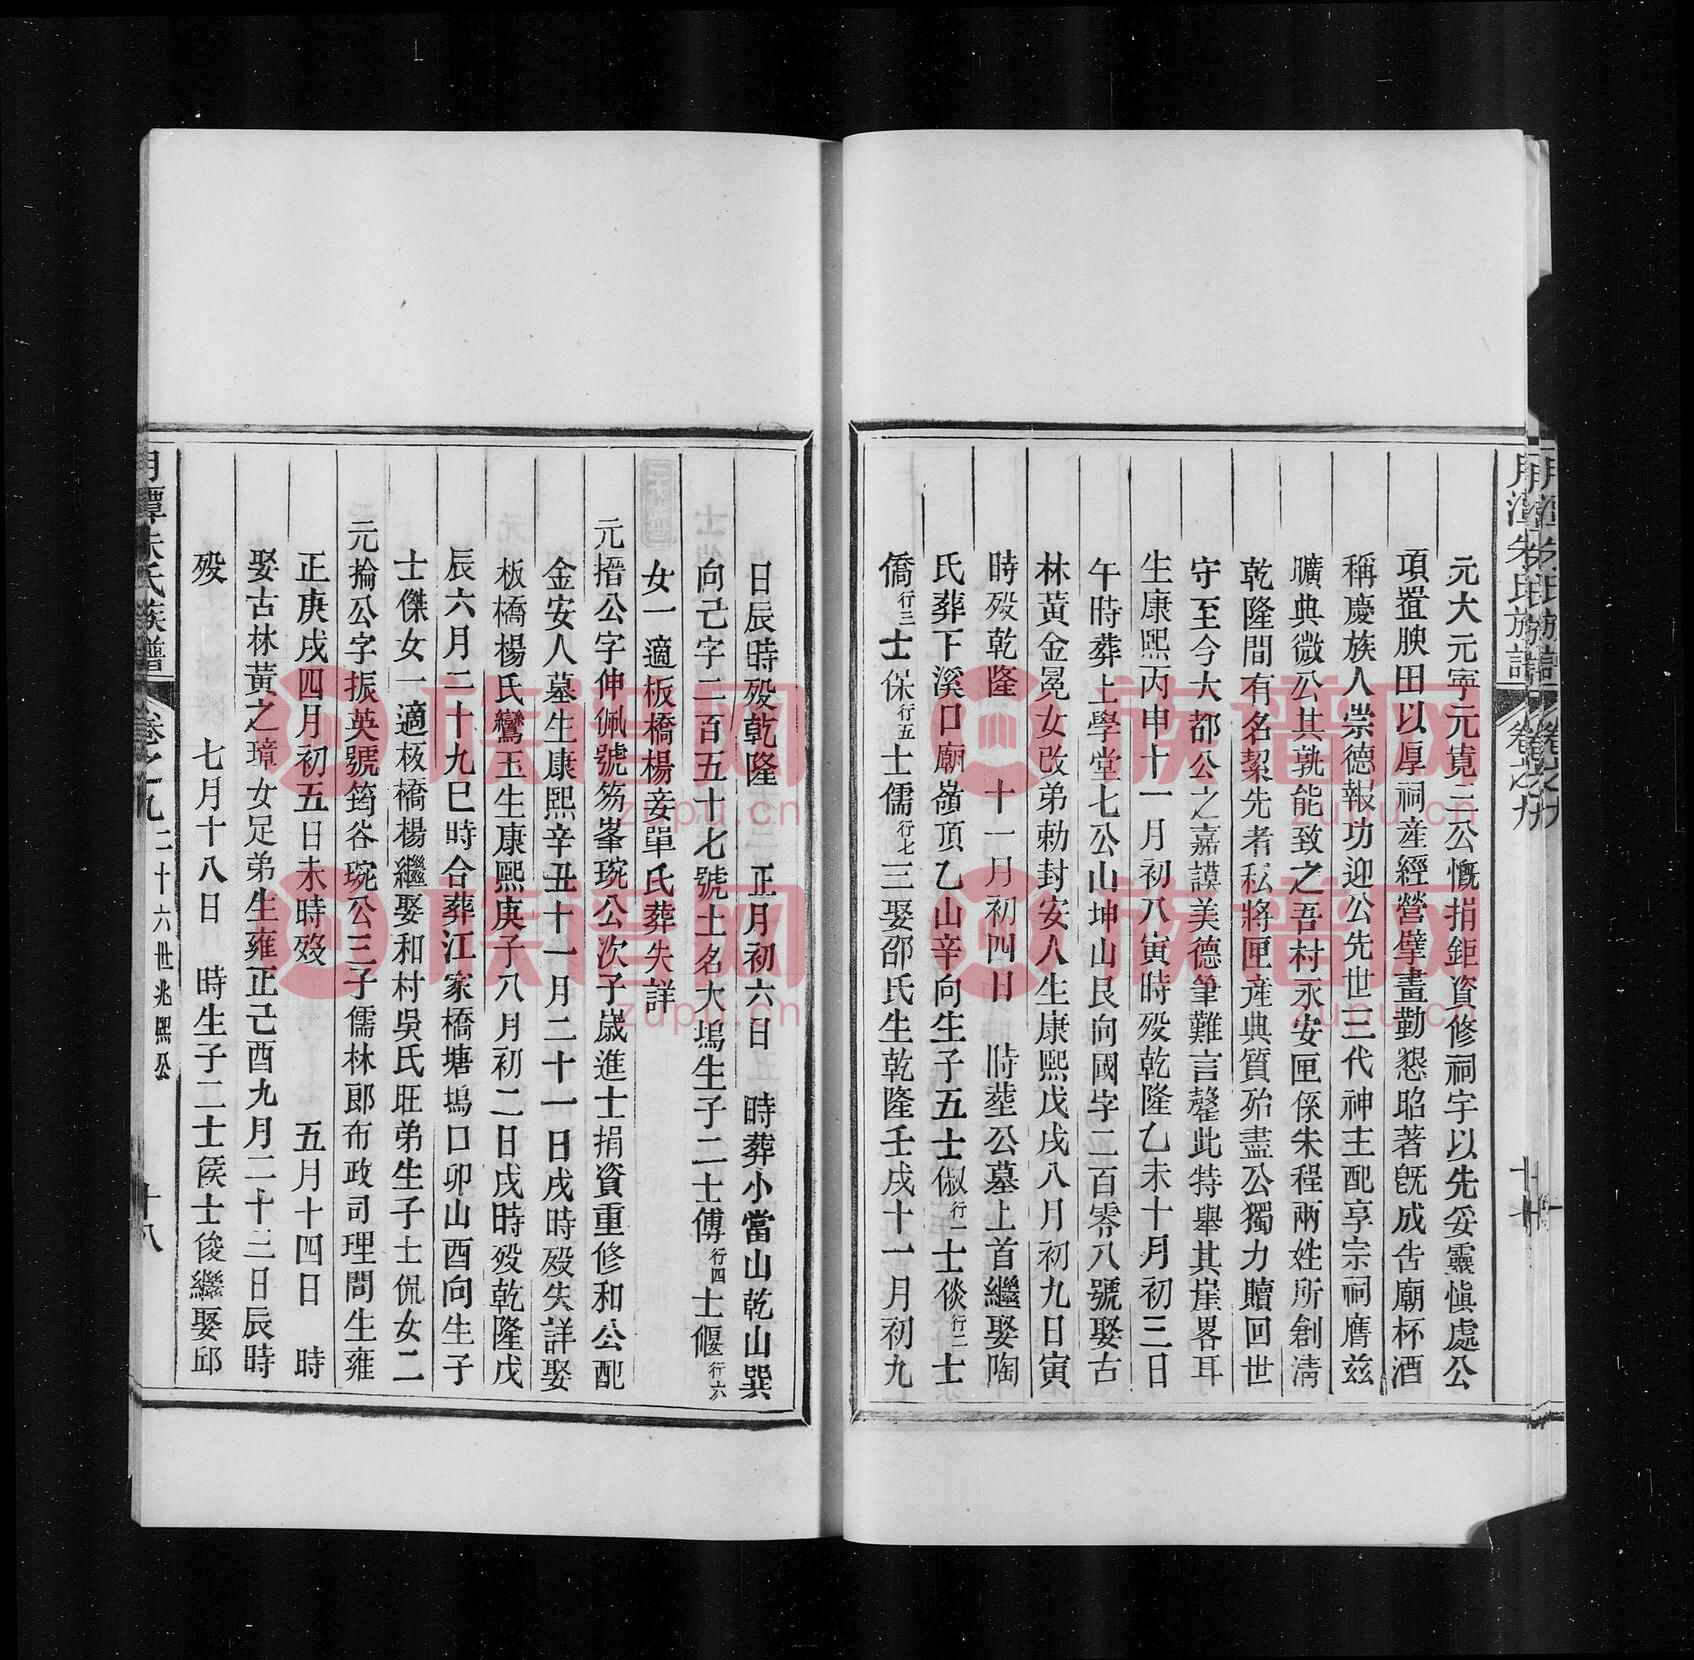 月潭朱氏族譜 卷之九
元大元寧元寬三公慨捐鉅資修祠宇以先妥靈愼處公
項置腴田以厚祠産經營擘畫勤懇昭著旣成告廟杯酒
稱慶族人崇德報功迎公先世三代神主配享宗祠膺茲
曠典微公其孰能致之吾村永安匣係朱程兩姓所創清
乾隆間有名絜先者私將匣産典質殆盡公獨力贖回世
守至今大都公之嘉謨美德筆難言罄此特舉其崖畧耳
生康熙丙申十一月初八寅時殁乾隆乙未十月初三日
午時葬上學堂七公山坤山艮向國字二百零八號娶古
林黃金冕女改弟勅封安人生康熙戊戌八月初九日寅
時殁乾隆 十一月初四日 時塟公墓上首繼娶陶
氏葬下溪口廟嶺頂乙山辛向生子五士俶行一士倓行二士
僑行三士保行五士儒行七三娶邵氏生乾隆壬戌十一月初九
日辰時殁乾隆 正月初六日 時葬小當山乾山巽
向己字二百五十七號土名大塢生子二士傅行四士偃行六
女一適板橋楊妾單氏葬失詳
元搢公字伸佩號笏峯琬公次子歲進士捐資重修和公配
金安人墓生康熙辛丑十一月二十一日戌時殁失詳娶
板橋楊氏鸞玉生康熙庚子八月初二日戌時殁乾隆戊
辰六月二十九巳時合葬江家橋塘塢口卯山酉向生子
士傑女一適板橋楊繼娶和村吳氏旺弟生子士侃女二
元掄公字振英號筠谷琬公三子儒林郎布政司理問生雍
正庚戌四月初五日未時殁 五月十四日 時
娶古林黃之璋女足弟生雍正己酉九月二十三日辰時
殁 七月十八日 時生子二士俟士俊繼娶邱
月潭朱氏族譜 卷之九 二十六世兆熙公 十八